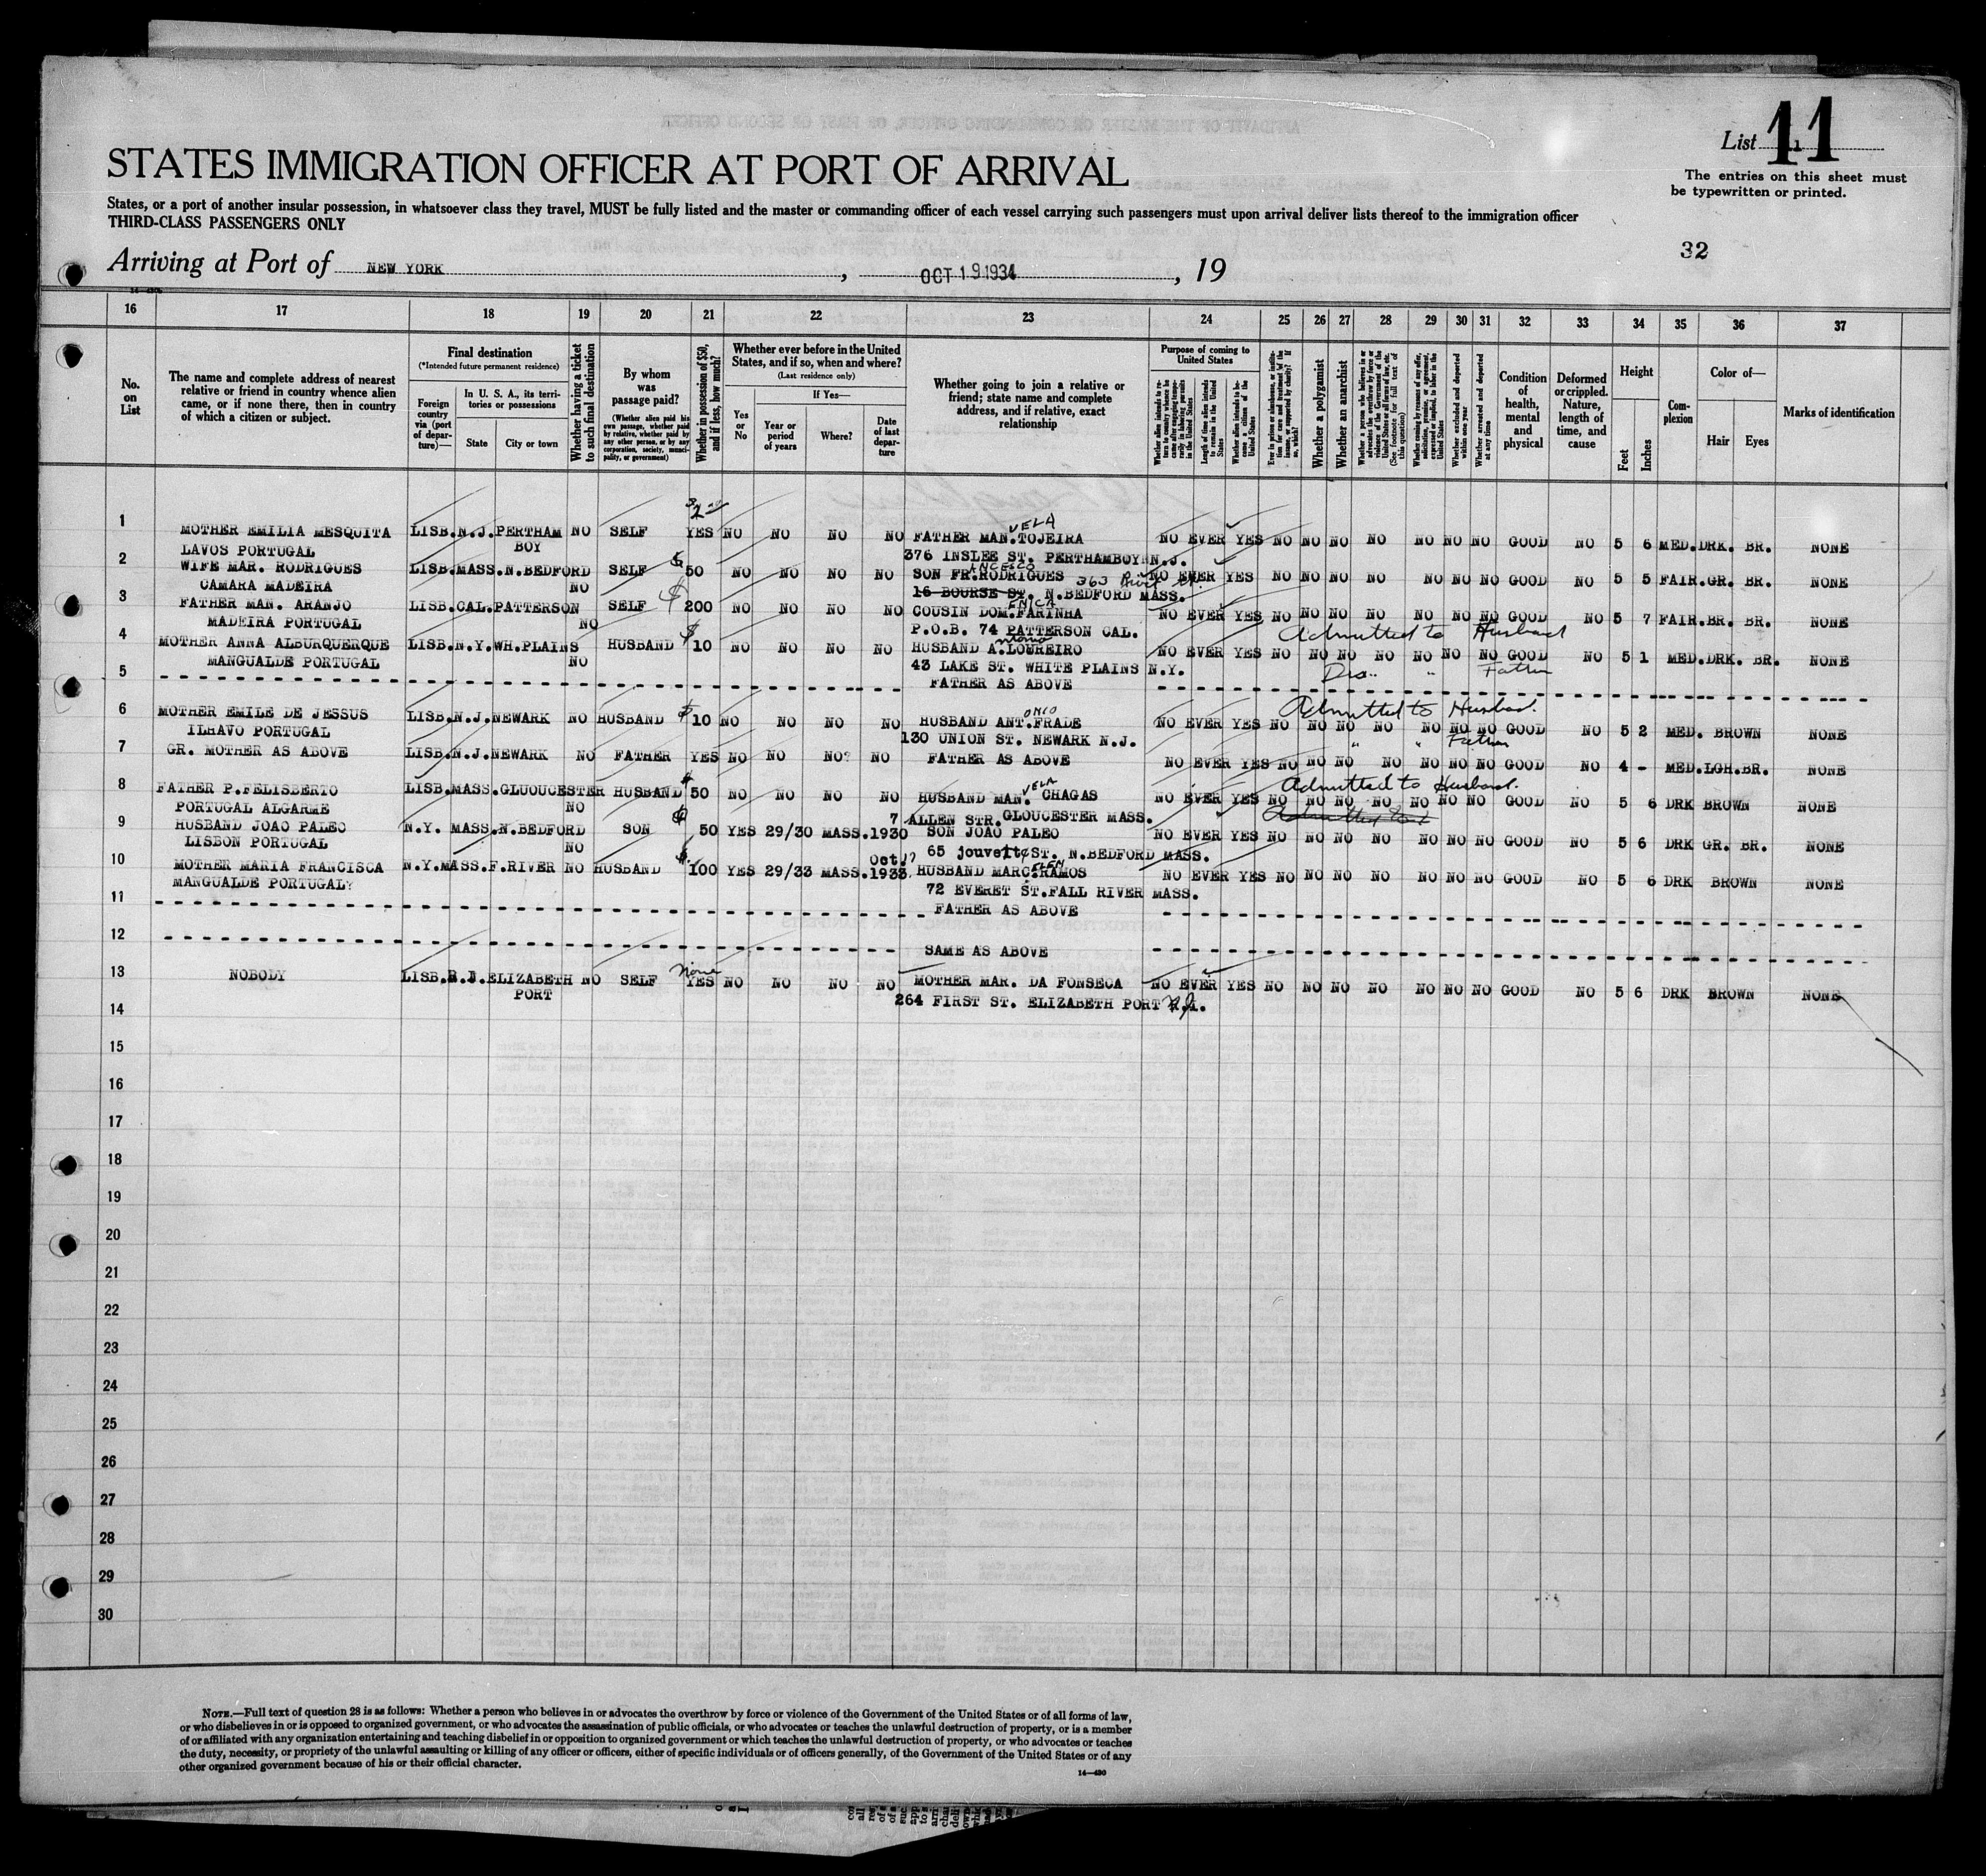 List 11
The entries on this sheet must
be typewritten or printed.
STATES IMMIGRATION OFFICER AT PORT OF ARRIVAL
States, or a port of another insular possession, in whatsoever class they travel, MUST be fully listed and the master or commanding officer of each vessel carrying such passengers must upon arrival deliver lists thereof to the immigration officer
THIRD-CLASS PASSENGERS ONLY
32
Arriving at Port of NEW YORK, OCT 19 1934, 19
16 17 18 19 20 21 22 23 24 25 26 27 28 29 30 31 32 33 34 35 36 37
No. on List
The name and complete address of nearest relative or friend in country whence alien came, or if none there, then in country of which a citizen or subject.
Final destination
(*Intended future permanent residence)
Foreign country via (port of departure)—
In U. S. A., its territories or possessions
State
City or town
Whether having a ticket to such final destination
By whom was passage paid?
(Whether alien paid his own passage, whether paid by relative, whether paid by any other person, or by any corporation, society, municipality, or government)
Whether in possession of $50, and if less, how much?
Whether ever before in the United States, and if so, when and where?
(Last residence only)
Yes or No
If Yes—
Year or period of years
Where?
Date of last departure
Whether going to join a relative or friend; state name and complete address, and if relative, exact relationship
Purpose of coming to United States
Length of time alien intends to remain in the United States
Whether alien intends to become a citizen of the United States
Whether a polygamist
Whether an anarchist
(See footnote for full text of this question)
Whether excluded and deported within one year
Whether arrested and deported at any time
Condition of health, mental and physical
Deformed or crippled. Nature, length of time, and cause
Height
Feet
Inches
Complexion
Color of—
Hair
Eyes
Marks of identification
1 MOTHER EMILIA MESQUITA LISB. N.J. PERTHAM NO SELF YES NO NO NO NO FATHER MAN.VELA TOJEIRA NO EVER YES NO NO NO NO NO NO NO GOOD NO 5 6 MED. DRK. BR. NONE
LAVOS PORTUGAL BOY 376 INSLEE ST. PERTHAMBOY N.J.
2 WIFE MAR. RODRIGUES LISB. MASS. N.BEDFORD SELF $ 50 NO NO NO NO SON FR.ANCESCO RODRIGUES 363 NO EVER YES NO NO NO NO NO NO NO GOOD NO 5 5 FAIR. GR. BR. NONE
CAMARA MADEIRA NO 16 BOURSE ST. N.BEDFORD MASS.
3 FATHER MAN. ARANJO LISB. CAL. PATTERSON SELF $ 200 NO NO NO NO COUSIN DOM.ENICA FARINHA NO EVER YES NO NO NO NO NO NO NO GOOD NO 5 7 FAIR. BR. BR. NONE
MADEIRA PORTUGAL NO P.O.B. 74 PATTERSON CAL. Admitted to Husband
4 MOTHER ANNA ALBURQUERQUE LISB. N.Y. WH.PLAINS HUSBAND $ 10 NO NO NO NO HUSBAND A. LOUREIRO NO EVER YES NO NO NO NO NO NO NO GOOD NO 5 1 MED. DRK. BR. NONE
MANGUALDE PORTUGAL NO 43 LAKE ST. WHITE PLAINS N.Y. " Father
5 FATHER AS ABOVE
Admitted to Husband.
6 MOTHER EMILE DE JESSUS LISB. N.J. NEWARK NO HUSBAND $ 10 NO NO NO NO HUSBAND ANT.ONIO FRADE NO EVER YES NO NO NO NO NO NO NO GOOD NO 5 2 MED. BROWN NONE
ILHAVO PORTUGAL 130 UNION ST. NEWARK N.J. " " Father
7 GR. MOTHER AS ABOVE LISB. N.J. NEWARK NO FATHER YES NO NO NO? NO FATHER AS ABOVE NO EVER YES NO NO NO NO NO NO NO GOOD NO 4 - MED. LGH. BR. NONE
Admitted to Husband.
8 FATHER P.FELISBERTO LISB. MASS. GLUOUCESTER HUSBAND $ 50 NO NO NO NO HUSBAND MAN.VELA CHAGAS NO EVER YES NO NO NO NO NO NO NO GOOD NO 5 6 DRK BROWN NONE
PORTUGAL ALGARME NO 7 ALLEN STR. GLOUCESTER MASS.
9 HUSBAND JOAO PALEO N.Y. MASS. N.BEDFORD SON $ 50 YES 29/30 MASS. 1930 SON JOAO PALEO NO EVER YES NO NO NO NO NO NO NO GOOD NO 5 6 DRK GR. BR. NONE
LISBON PORTUGAL NO 65 jouvette ST. N.BEDFORD MASS.
10 MOTHER MARIA FRANCISCA N.Y. MASS. F.RIVER NO HUSBAND $ 100 YES 29/33 MASS. Oct 17 1933 HUSBAND MARC.ELEN RAMOS NO EVER YES NO NO NO NO NO NO NO GOOD NO 5 6 DRK BROWN NONE
MANGUALDE PORTUGAL? 72 EVERET ST. FALL RIVER MASS.
11 FATHER AS ABOVE
12 SAME AS ABOVE
13 NOBODY LISB. ELIZABETH NO SELF none YES NO NO NO NO MOTHER MAR. DA FONSECA NO EVER YES NO NO NO NO NO NO NO GOOD NO 5 6 DRK BROWN NONE
PORT 264 FIRST ST. ELIZABETH PORT N.J.
14
15
16
17
18
19
20
21
22
23
24
25
26
27
28
29
30
NOTE.—Full text of question 28 is as follows: Whether a person who believes in or advocates the overthrow by force or violence of the Government of the United States or of all forms of law,
or who disbelieves in or is opposed to organized government, or who advocates the assassination of public officials, or who advocates or teaches the unlawful destruction of property, or is a member
of or affiliated with any organization entertaining and teaching disbelief in or opposition to organized government or which teaches the unlawful destruction of property, or who advocates or teaches
the duty, necessity, or propriety of the unlawful assaulting or killing of any officer or officers, either of specific individuals or of officers generally, of the Government of the United States or of any
other organized government because of his or their official character.
14—430